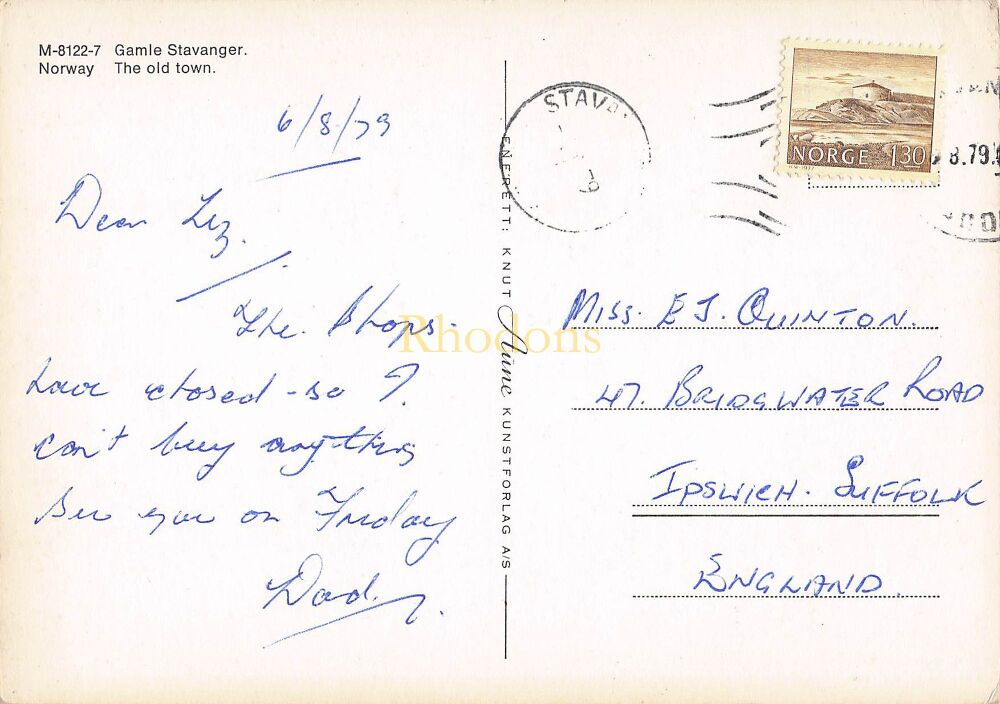 M-8122-7 Gamle Stavanger.
Norway The old town.
6/8/79
Dear Liz.
The Shops.
have closed - so I.
can't buy anything
See you on Friday
Dad.
ENERETT: KNUT Aune KUNSTFORLAG A/S
STAVA
NORGE 130
8.79.
Rhodons
Miss. E J. QUINTON.
47. BRIDGWATER ROAD
IPSWICH. SUFFOLK
ENGLAND.